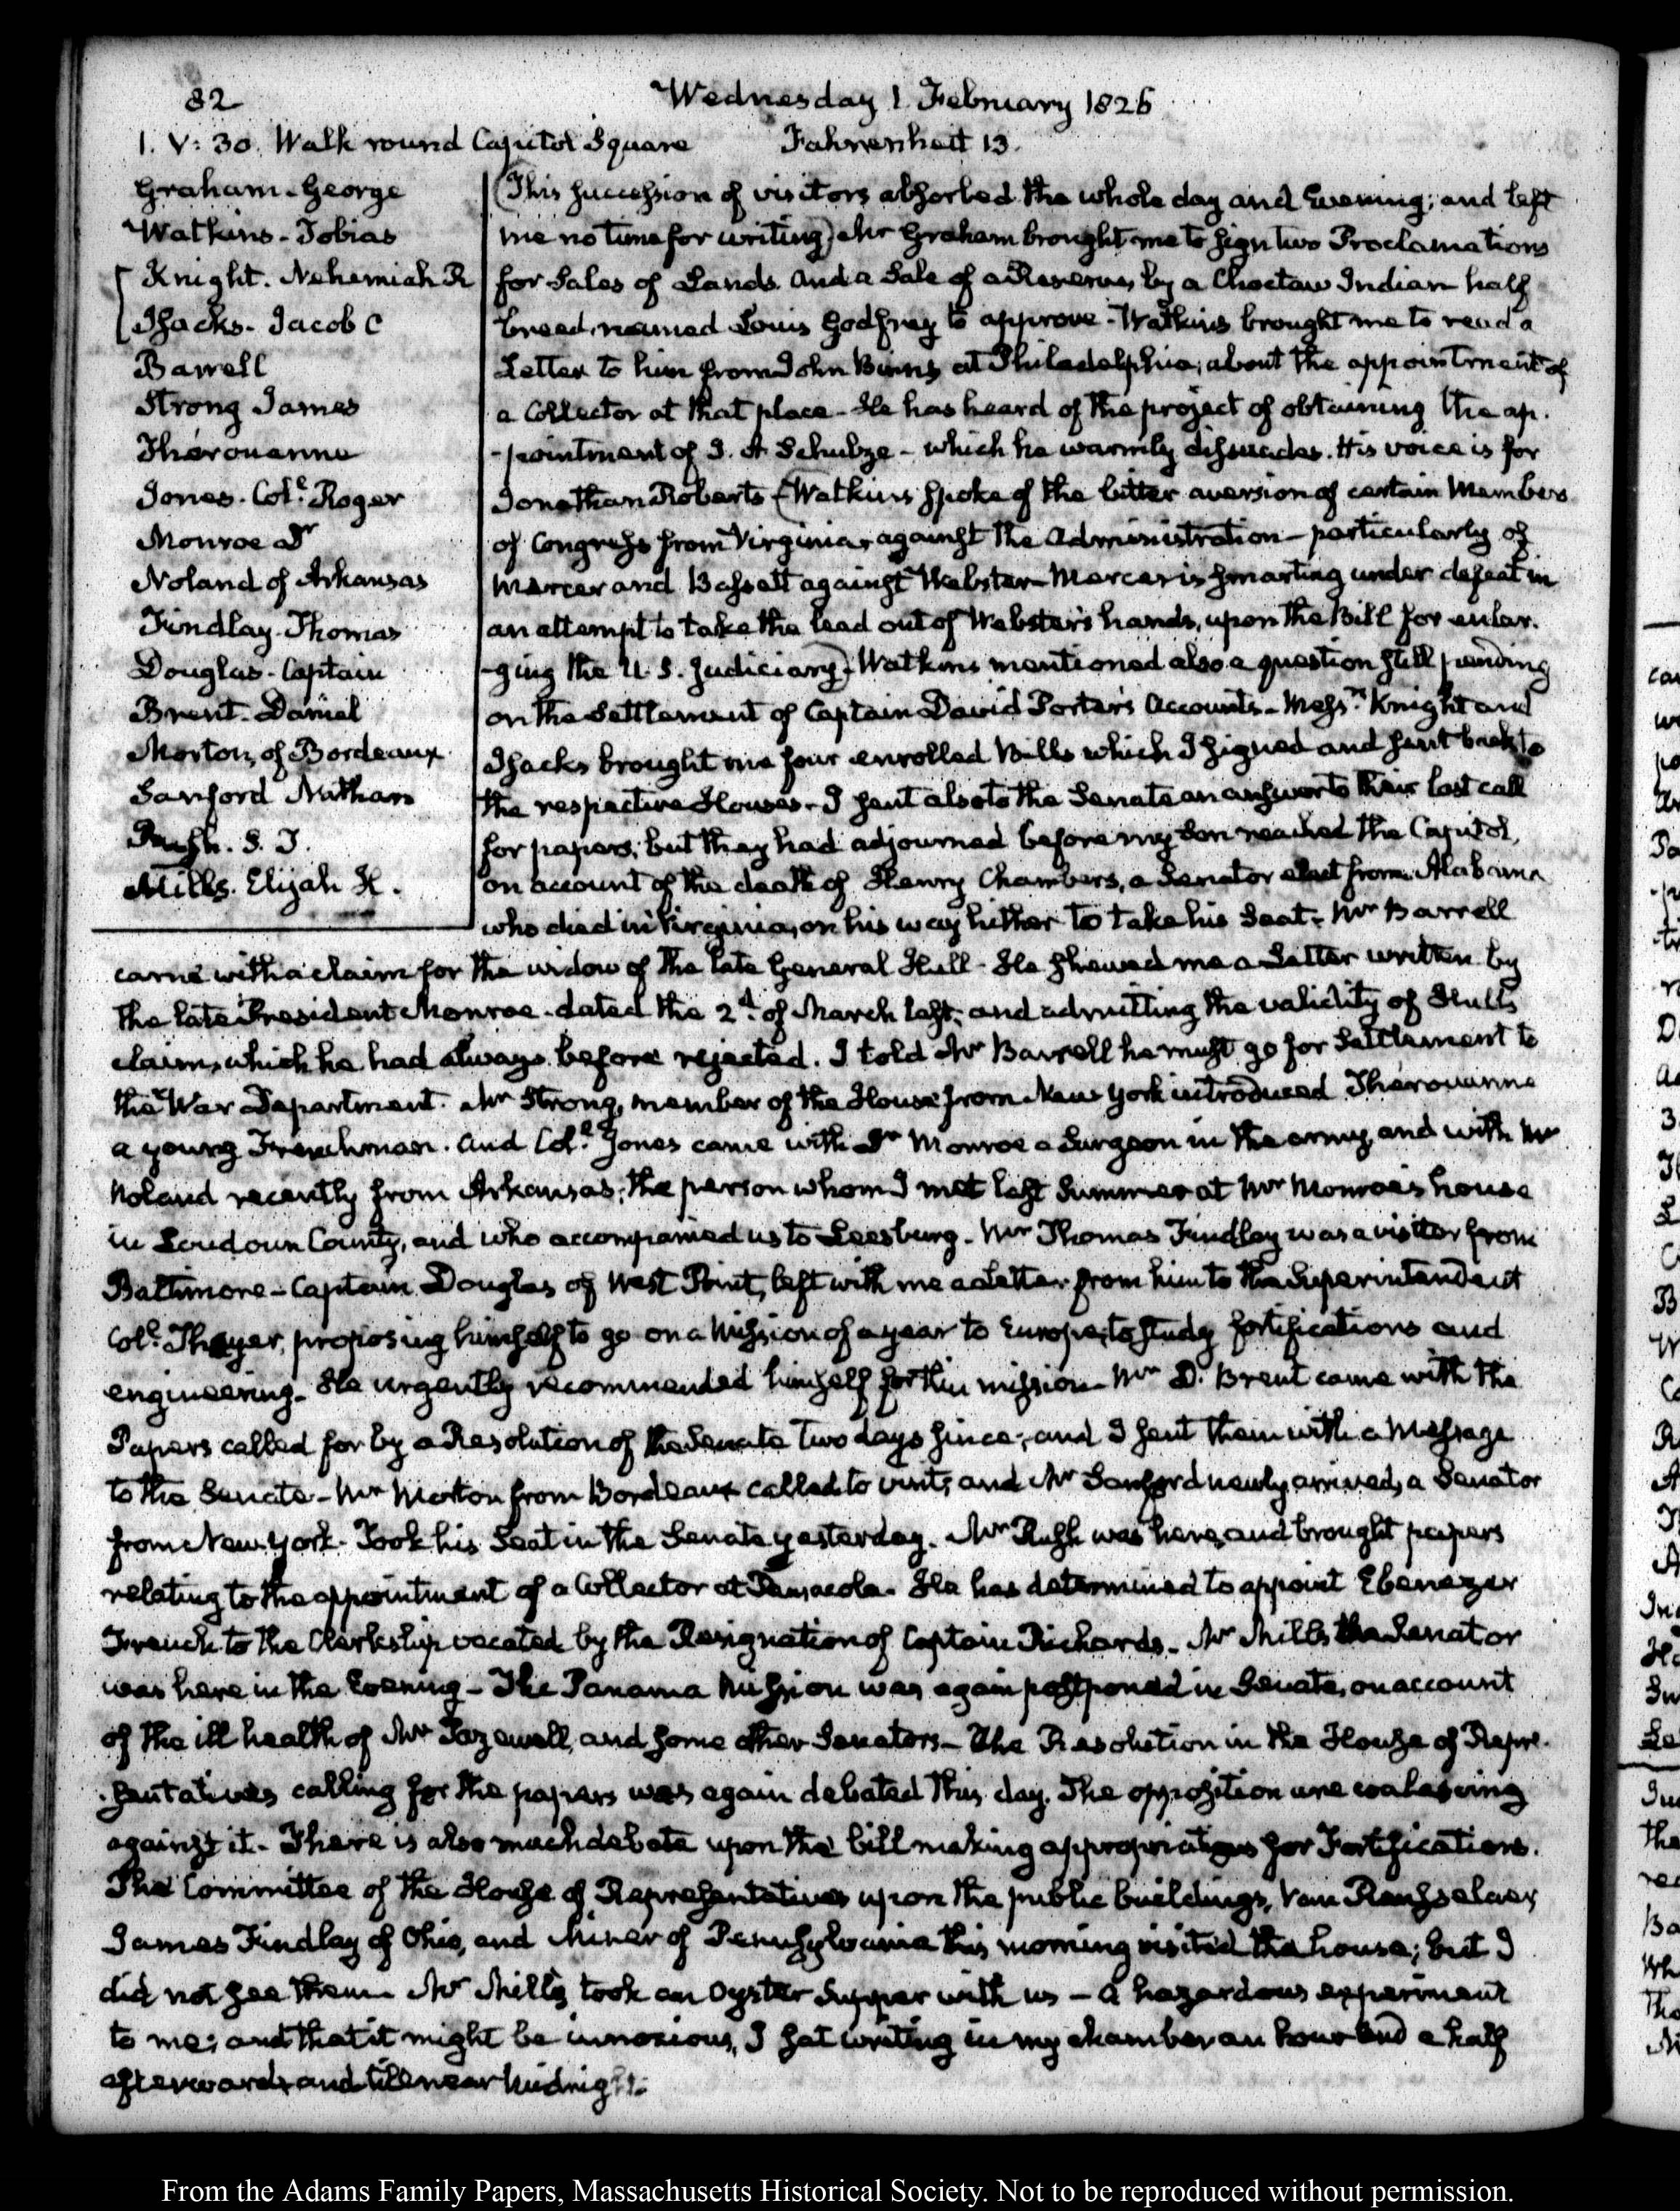 82
Wednesday 1. February 1826
1. V: 30. Walk round Capitol Square Fahrenheit 13.
Graham - George
Watkins - Tobias
Knight. Nehemiah R
Isacks - Jacob C
Barrell
Strong James
Thérouanne
Jones. Col.e Roger
Monroe Dr
Noland of Arkansas
Findlay. Thomas
Douglas - Captain
Brent. Daniel
Morton, of Bordeaux
Sanford Nathan
Rush. S. T.
Mills. Elijah H.
(This succession of visitors absorbed the whole day and Evening; and left
me no time for writing) Mr Graham brought me to sign two Proclamations
for Sales of Lands. and a Sale of a Reserve, by a Choctaw Indian half
breed, named Louis Godfrey to approve - Watkins brought me to read a
Letter to him from John Binns at Philadelphia, about the appointment of
a Collector at that place - He has heard of the project of obtaining the ap.
-pointment of J. A Schulze - which he warmly dissuades. His voice is for
Jonathan Roberts - (Watkins spoke of the bitter aversion of certain Members
of Congress from Virginia, against the Administration - particularly of
Mercer and Bassett against Webster - Mercer is smarting under defeat in
an attempt to take the lead out of Webster's hands, upon the Bill for enlar.
-ging the U. S. Judiciary) - Watkins mentioned also a question still pending
on the Settlement of Captain David Porter's Accounts - Messrs. Knight and
Isacks brought me four enrolled Bills which I signed and sent back to
the respective Houses - I sent also to the Senate an answer to their last call
for papers; but they had adjourned before my Son reached the Capitol,
on account of the death of Henry Chambers, a Senator elect from Alabama
who died in Virginia, on his way hither to take his Seat - Mr Barrell
came with a claim for the widow of the late General Hull - He shewed me a Letter written by
the late President Monroe - dated the 2d. of March last, and admitting the validity of Hull's
claim, which he had always before rejected. I told Mr Barrell he must go for Settlement to
the War Department. Mr Strong, member of the House from New York introduced Thérouanne
a young Frenchman. and Col.e Jones came with Dr Monroe a Surgeon in the army, and with Mr
Noland recently from Arkansas; the person whom I met last Summer at Mr Monroe's house
in Loudoun County, and who accompanied us to Leesburg - Mr Thomas Findlay was a visitor from
Baltimore - Captain Douglas of West Point, left with me a Letter from him to the Superintendent
Col.e Thayer, proposing himself to go on a Mission of a year to Europe, to study fortifications and
engineering - He urgently recommended himself for this mission - Mr D. Brent came with the
Papers called for by a Resolution of the Senate two days since, and I sent them with a Message
to the Senate - Mr Morton from Bordeaux called to visit; and Mr Sanford newly arrived, a Senator
from New York - Took his Seat in the Senate yesterday. Mr Rush was here, and brought papers
relating to the appointment of a Collector at Pensacola - He has determined to appoint Ebenezer
French to the Clerkship vacated by the Resignation of Captain Richards - Mr Mills the Senator
was here in the Evening - The Panama Mission was again postponed in Senate, on account
of the ill health of Mr Tazewell, and some other Senators - The Resolution in the House of Repre-
-sentatives calling for the papers was again debated this day. The opposition are coalescing
against it - There is also much debate upon the bill making appropriations for Fortifications.
The Committee of the House of Representatives upon the public buildings, Van Rensselaer,
James Findlay of Ohio, and Miner of Pennsylvania this morning visited the house; but I
did not see them Mr Mills took an Oyster Supper with us - a hazardous experiment
to me; and that it might be innoxious, I sat writing in my chamber an hour and a half
afterwards, and till near Midnight.
From the Adams Family Papers, Massachusetts Historical Society. Not to be reproduced without permission.